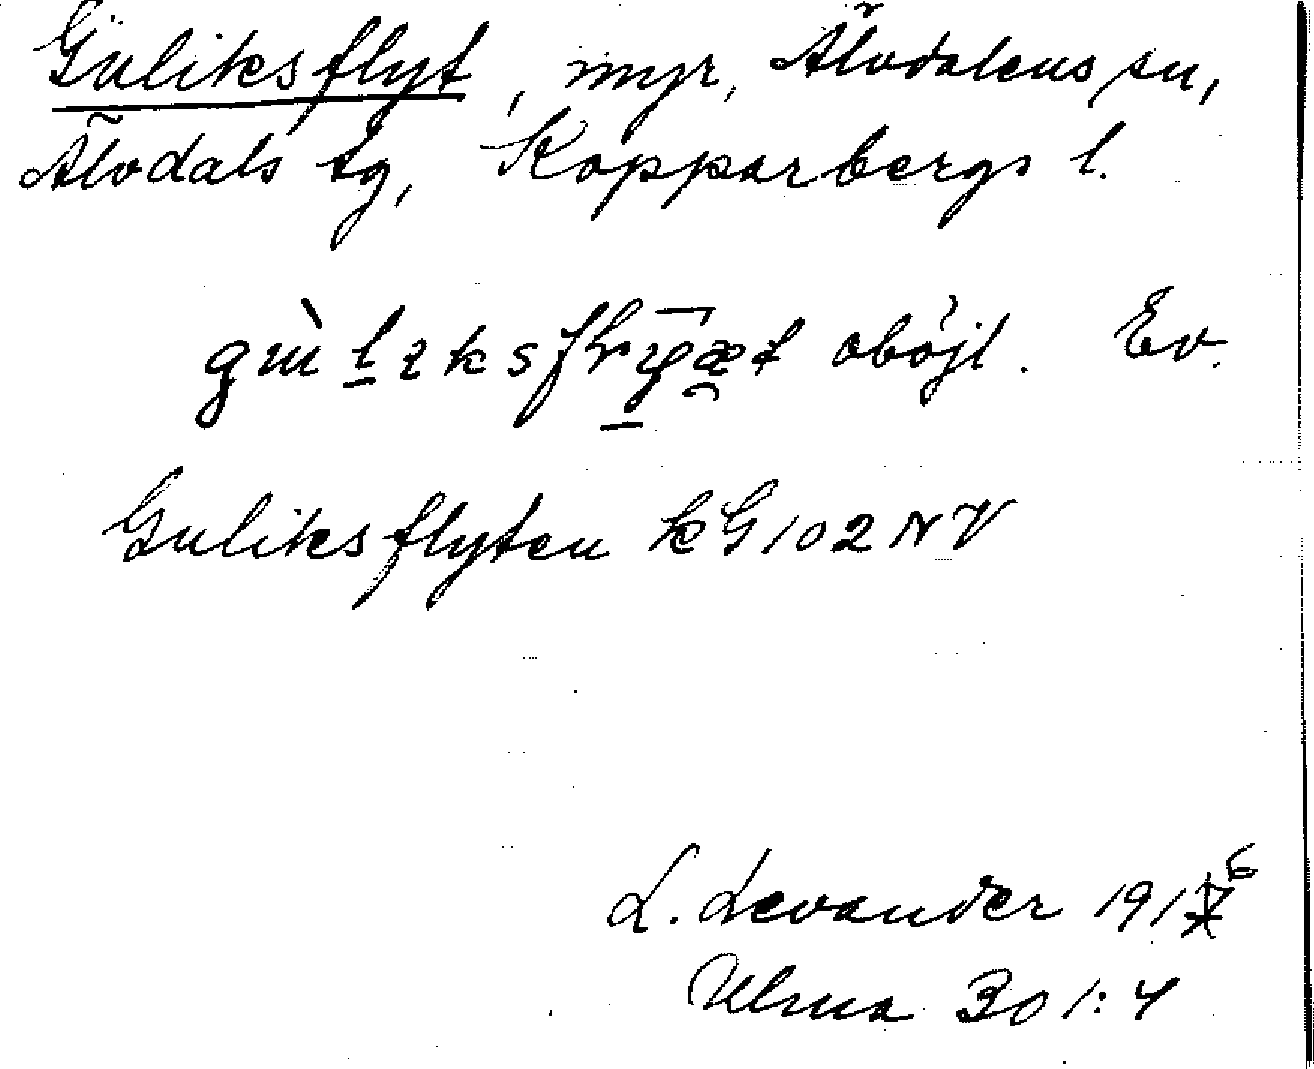 Guliksflyt, myr, Älvdalens sn,
Älvdals tg, Kopparbergs l.
oböjl. Ev.
Guliksflyten kG102NV
L. Levander 1916
Ulma 301:4